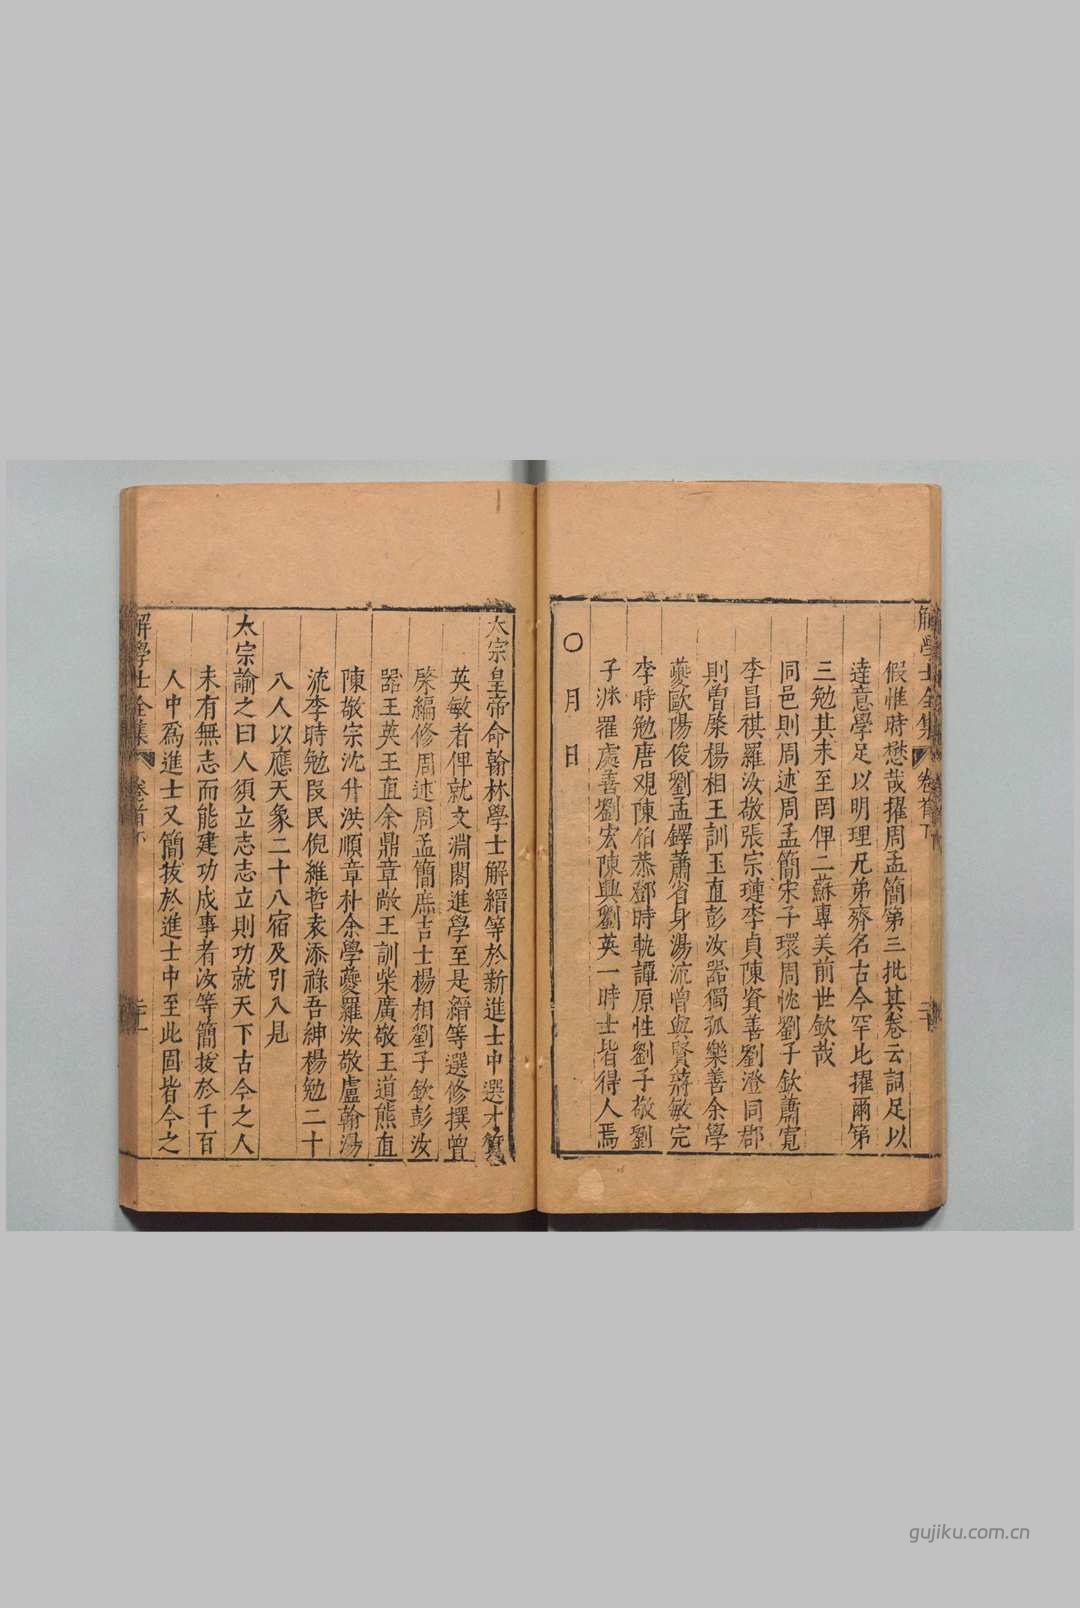 解學士全集 卷首下 二十
假惟時懋哉擢周孟簡第三批其卷云詞足以
達意學足以明理兄弟齊名古今罕比擢爾第
三勉其未至罔俾二蘇專美前世欽哉
同邑則周述周孟簡宋子環周忱劉子欽蕭寬
李昌祺羅汝敬張宗璉李貞陳資善劉澄同郡
則曾棨楊相王訓王直彭汝器獨孤樂善余學
夔歐陽俊劉孟鐸蕭省身湯流曾與賢蔣敏完
李時勉唐觀陳伯恭鄧時軌譚原性劉子敬劉
子洣羅處善劉宏陳興劉英一時士皆得人焉
〇月日
太宗皇帝命翰林學士解縉等於新進士中選才質
英敏者俾就文淵閣進學至是縉等選修撰曾
棨編修周述周孟簡庶吉士楊相劉子欽彭汝
器王英王直余鼎章敞王訓柴廣敬王道熊直
陳敬宗沈升洪順章朴余學夔羅汝敬盧翰湯
流李時勉段民倪維哲袁添祿吾紳楊勉二十
八人以應天象二十八宿及引入見
太宗諭之曰人須立志志立則功就天下古今之人
未有無志而能建功成事者汝等簡拔於千百
人中爲進士又簡拔於進士中至此固皆今之
解學士全集 卷首下 二十一
gujiku.com.cn